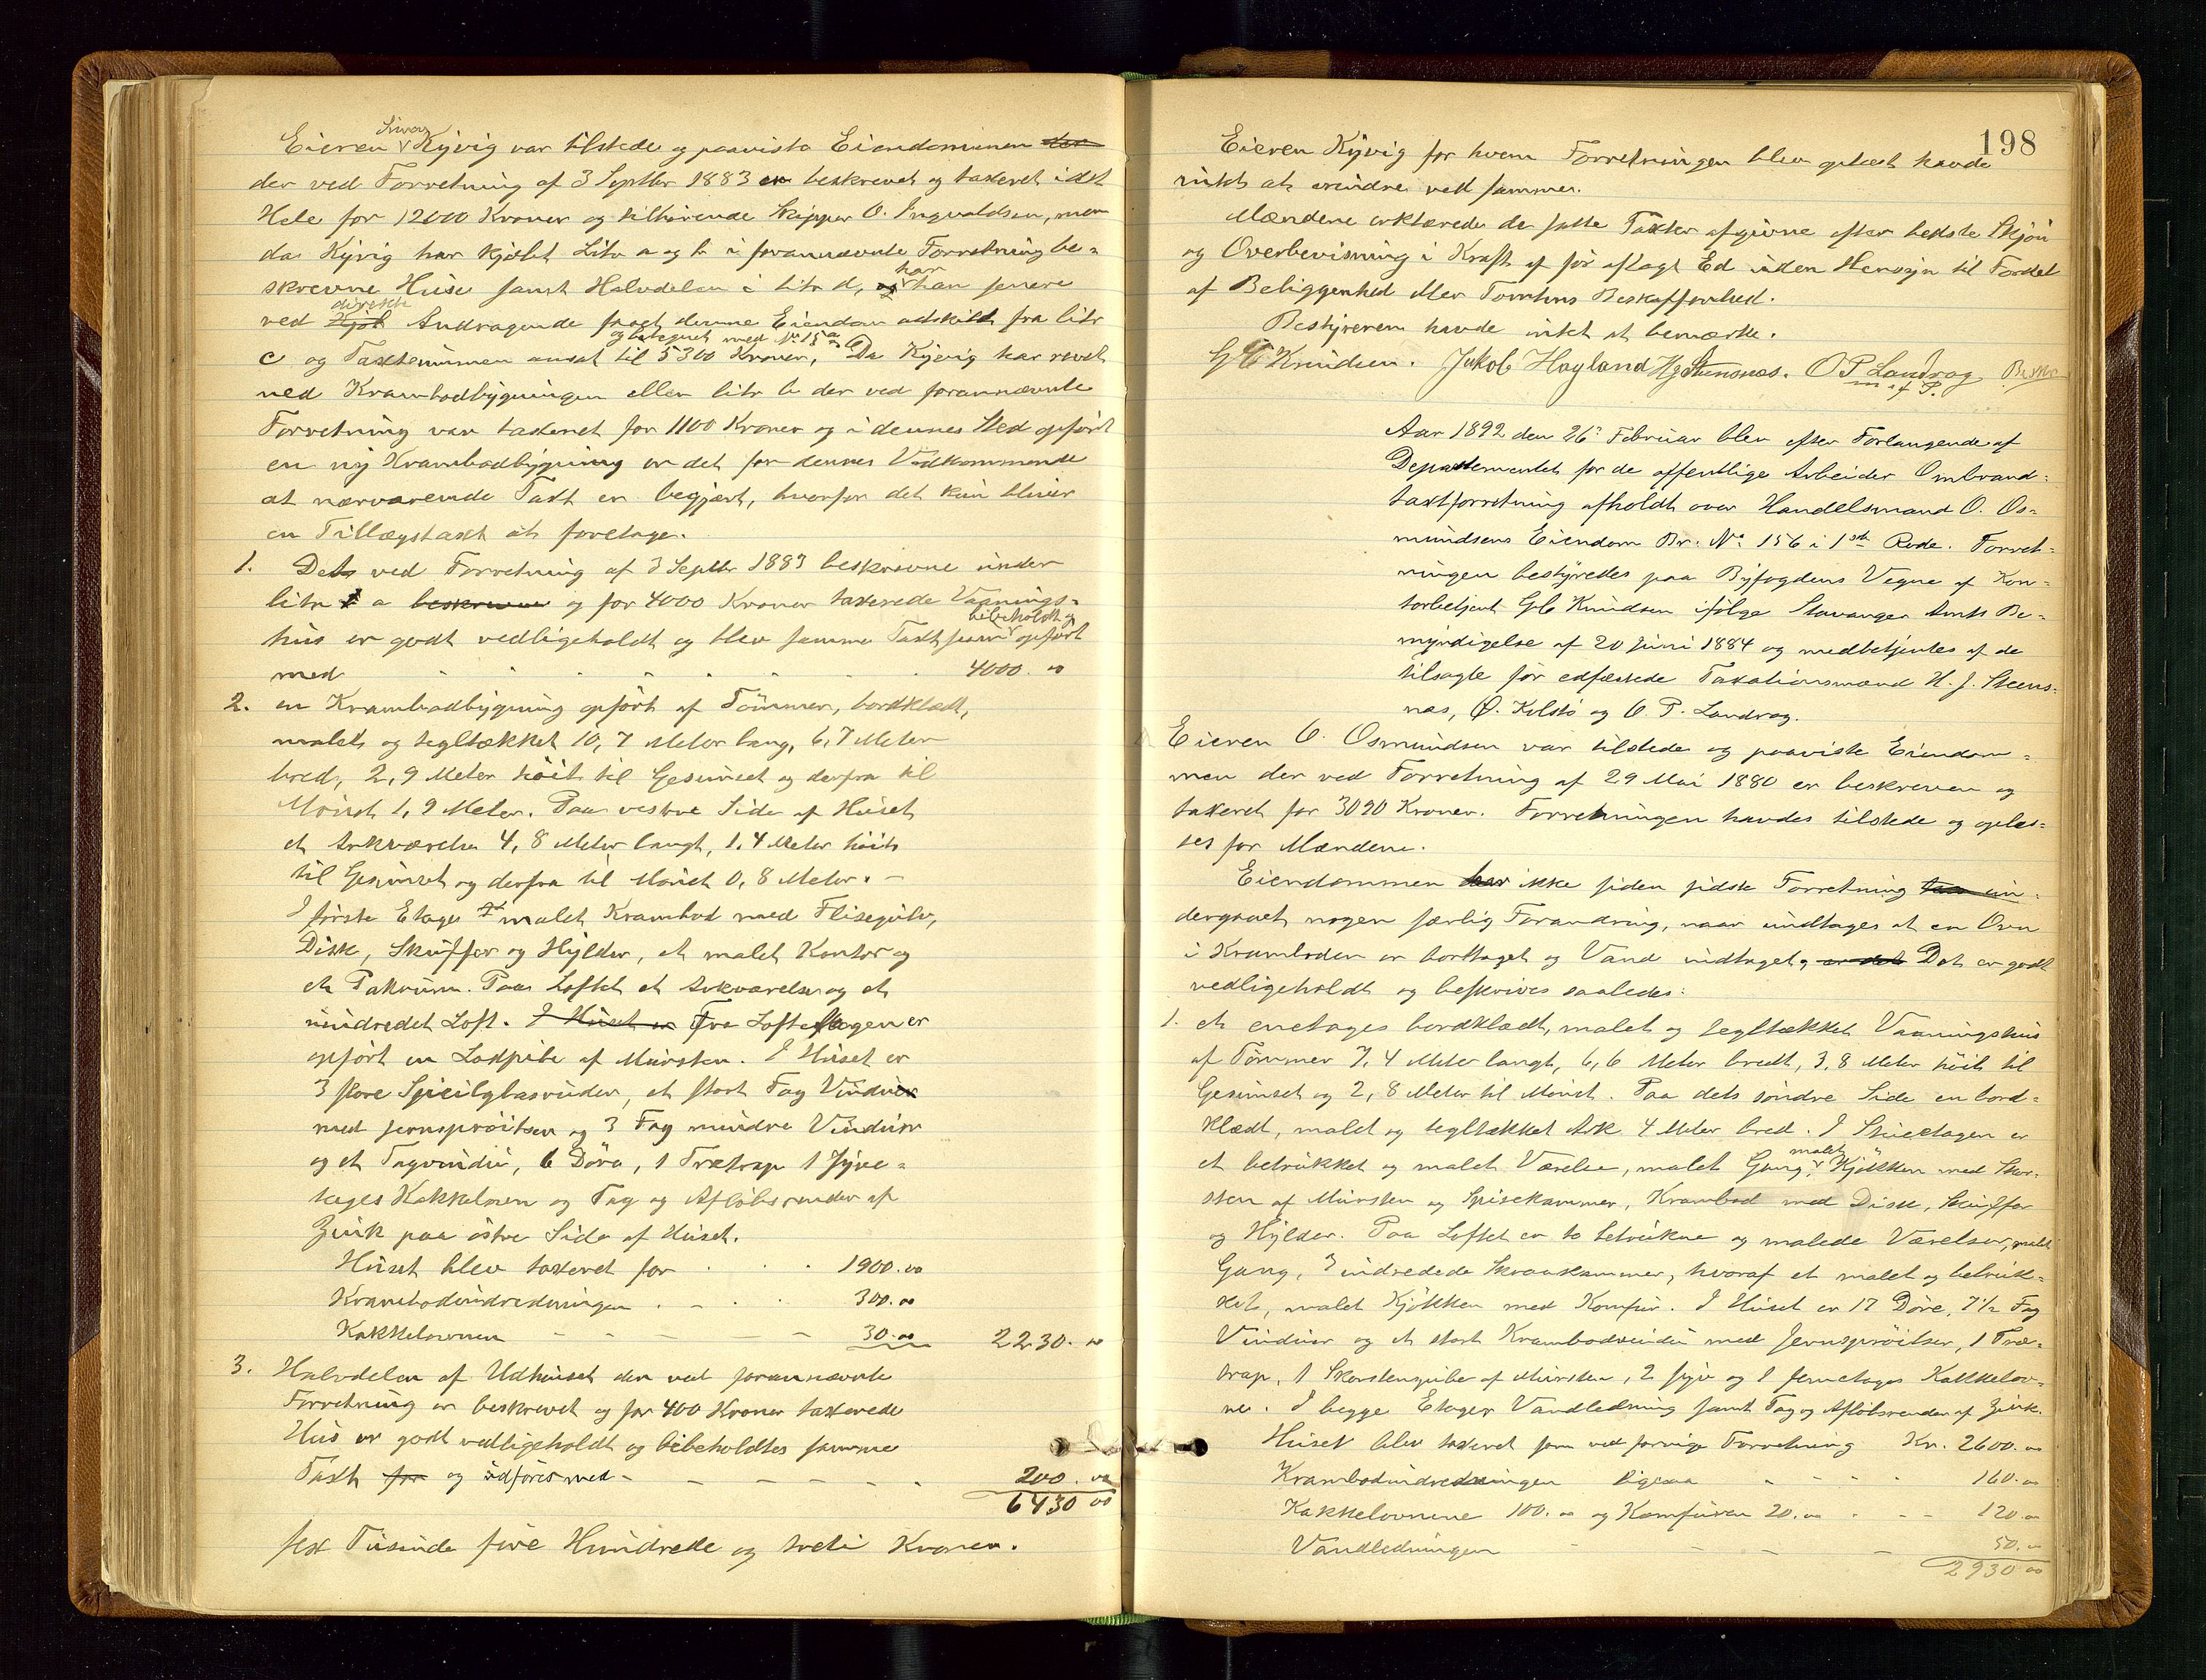 Eieren Kyvig var tilstede og paaviste Eiendommen
der ved Forretning af 3 Septbr 1883 er beskrevet og taxeret i det
Hele for 12000 Kroner og tilhørende Skipper O. Ingvaldsen, men
da Kyvig har kjøbt Litr a og b i forannævnte Forretning be-
skrevne Huse samt Halvdelen i litr d, har han senere
ved direkte Andragende faaet denne Eiendom adskildt fra litr
og betegnet med No 15 a
c og Taxtsummen ansat til 5300 Kroner, Da Kyvig har revet
ned Krambodbygningen eller litr b der ved forannævnte
Forretning var taxeret for 1100 Kroner og i dennes Sted opført
en ny Krambodbygning er det for dennes Vedkommende
at nærværende Taxt er begjært, hvorfor det kun bliver
en Tillægstaxt at foretage.
1. Det ved Forretning af 3 Septbr 1883 beskrevne under
litr a og for 4000 Kroner taxerede Vaanings-
hus er godt vedligeholdt og blev samme Taxt bibeholdt og opført
med 4000. 00
2. en Krambodbygning opført af Tømmer, bordklædt,
malet og tegltækket 10,7 Meter lang, 6,7 Meter
bred, 2,9 Meter høit til Gesimset og derfra til
Mønet 1,9 Meter. Paa vestre Side af Huset
et Arkværelse 4,8 Meter langt, 1,4 Meter høit
til Gesimset og derfra til Mønet 0,8 Meter. –
I første Etage malet Krambod med Flisegulv,
Disk, Skuffer og Hylder, et malet Kontor og
et Pakrum. Paa Loftet et Arkværelse og et
uindredet Loft. I Huset er Fra Loftetagen er
opført en Laxpibe af Mursten. I Huset er
3 store Speilglasruder, et stort Fag Vinduer
med Jernsprøitser og 3 Fag mindre Vinduer
og et Tagvindu, 6 Døre, 1 Trætrap 1 Fyre-
tages Kakkelovn og Tag og Afløbsrender af
Zink paa østre Side af Huset.
Huset blev taxeret for 1900. 00
Krambodindredningen 300. 00
Kakkelovnen 30. 00 2230. 00
3. Halvdelen af Udhuset der ved forannævnte
Forretning er beskrevet og for 400 Kroner taxerede
Hus er godt vedligeholdt og bibeholdtes samme
Taxt for og udføres med 200. 00
6430 00
sex Tusinde fire Hundrede og treti Kroner.
198
Eieren Kyvig for hvem Forretningen blev oplæst havde
intet at erindre ved samme.
Mændene erklærede de satte Taxter afgivne efter bedste Skjøn
og Overbevisning i Kraft af før aflagt Ed uden Hensyn til Fordel
af Beliggenhed eller Tomtens Beskaffenhed.
Bestyreren havde intet at bemærke.
G C Knudsen. Jakob Hayland H J Stensnæs. O P Landrag
m. f. P.
Aar 1892 den 26. Februar blev efter Forlangende af
Departementet for de offentlige Arbeider Ombrand-
taxtforretning afholdt over Handelsmand O. Os-
mundsens Eiendom Br. No 156 i 1ste Rode. Forret-
ningen bestyredes paa Byfogdens Vegne af Kon-
torbetjent G C Knudsen ifølge Stavanger Amts Be-
myndigelse af 20 Juni 1884 og medbetjentes af de
tilsagte før edfæstede Taxationsmænd H. J. Steens-
næs, O. Kilstø og O. P. Landrag.
Eieren O. Osmundsen var tilstede og paaviste Eiendom-
men der ved Forretning af 29 Mai 1880 er beskreven og
taxeret for 3090 Kroner. Forretningen havdes tilstede og oplæ-
ses for Mændene.
Eiendommen har ikke siden sidste Forretning un-
dergaaet nogen særlig Forandring, naar undtages at en Ovn
i Kramboden er borttaget og Vand indtaget, er det Det er godt
vedligeholdt og beskrives saaledes:
1. et enetages bordklædt, malet og tegltækket Vaaningshus
af Tømmer 7,4 Meter langt, 6,6 Meter bredt, 3,8 Meter høit til
Gesimset og 2,8 Meter til Mønet. Paa dets søndre Side en bord-
klædt, malet og tegltækket Ark 4 Meter bred. I Stueetagen er
et betrukket og malet Værelse, malet Gang, malet Kjøkken med Skor-
sten af Mursten og Spisekammer, Krambod med Disk, Skuffer
og Hylder. Paa Loftet er to betrukne og malede Værelser, malet
Gang, 3 indredede Skraakammer, hvoraf et malet og betruk-
ket, malet Kjøkken med Komfur. I Huset er 17 Døre, 7½ Fag
Vinduer og et stort Krambodvindu med Jernsprøitser, 1 Træ-
trap, 1 Skorstenspibe af Mursten, 2 fyr og 1 femetages Kakkelov-
ne. I begge Etager Vandledning samt Tag og Afløbsrender af Zink.
Huset blev taxeret som ved forrige Forretning Kr. 2600. 00
Krambodindredningen ligesaa 160. 00
Kakkelovnene 100. 00 og Komfuren 20. 00 120. 00
Vandledningen 50. 00
2930 00